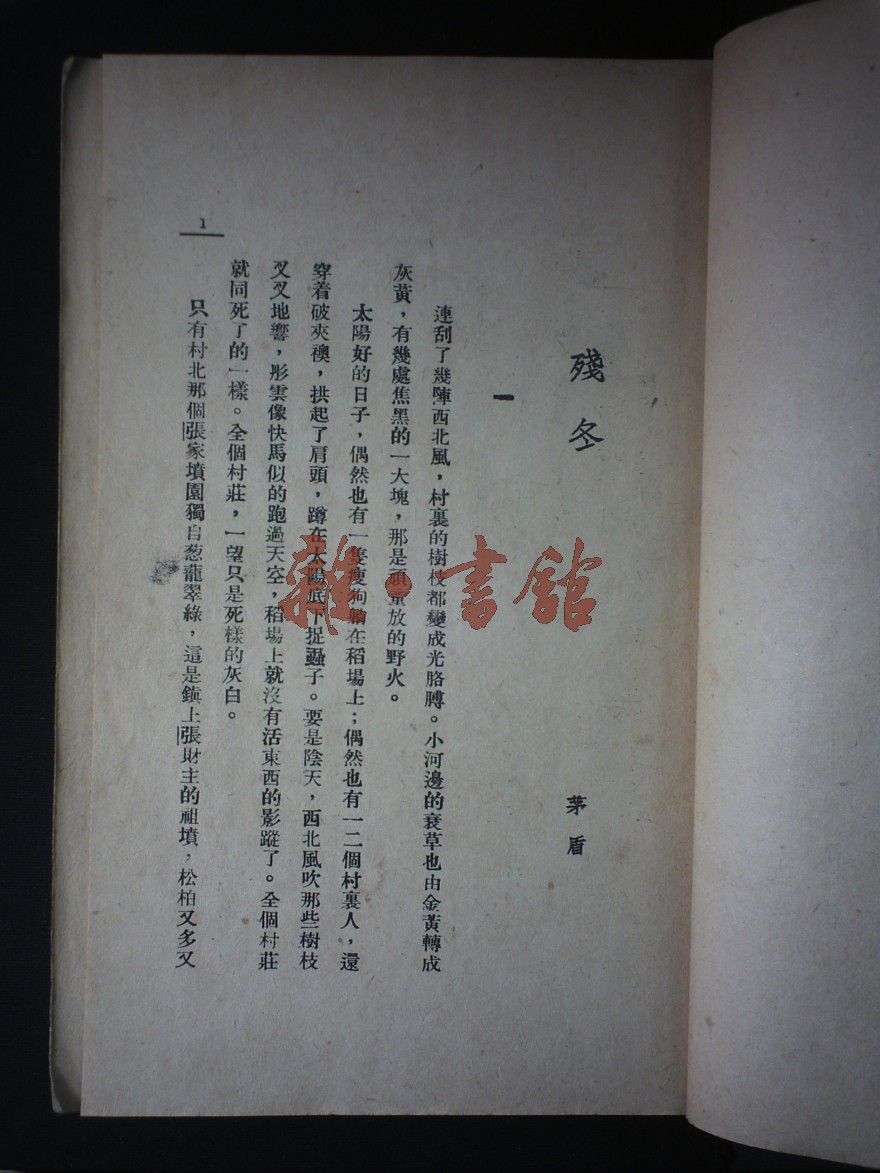 殘冬
茅盾
一
連刮了幾陣西北風，村裏的樹枝都變成光胳膊。小河邊的衰草也由金黃轉成
灰黃，有幾處焦黑的一大塊，那是頑童放的野火。
太陽好的日子，偶然也有一隻瘦狗躺在稻場上；偶然也有一二個村裏人，還
穿着破夾襖，拱起了肩頭，蹲在太陽底下捉蝨子。要是陰天，西北風吹那些樹枝
叉叉地響，彤雲像快馬似的跑過天空，稻場上就沒有活東西的影蹤了。全個村莊
就同死了的一樣。全個村莊，一望只是死樣的灰白。
只有村北那個張家墳園獨自葱蘢翠綠，這是鎭上張財主的祖墳，松柏又多又
1
雜·書舘